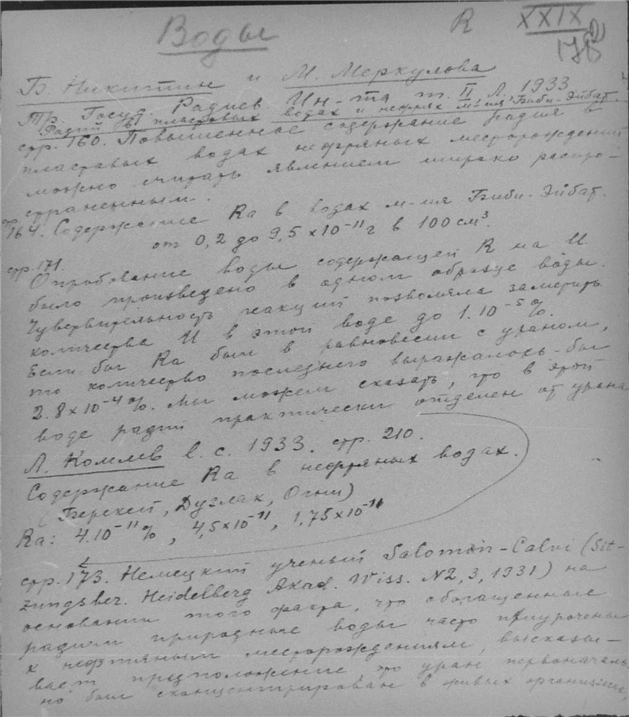 Воды R XXIX
178
Б. Никитин и М. Меркулова
Тр. Госуд. Радиев. Ин-та т. II. Л. 1933
Радий в пластовых водах и нефтях м-ия Биби-Эйбат.
стр. 160. Повышенное содержание радия в
пластовых водах нефтяных месторождений
можно считать явлением широко распро-
страненным.
стр. 164. Содержание Ra в водах м-ия Биби-Эйбат.
от 0,2 до 9,5×10⁻¹¹г в 100 см³.
стр. 171.
Опробование воды содержащей R на U
было произведено в одном образце воды.
Чувствительность реакций позволяла заметить
количества U в этой воде до 1.10⁻⁵%.
Если бы Ra был в равновесии с ураном,
то количество последнего выражалось бы
2.8×10⁻⁴%. Мы можем сказать, что в этой
воде радий практически отделен от урана
Л. Комлев l. c. 1933. стр. 210.
Содержание Ra в нефтяных водах.
(Берекей, Дузлак, Огни)
Ra: 4.10⁻¹¹%, 4,5×10⁻¹¹, 1,75×10⁻¹¹
стр. 173. Немецкий ученый Salomon-Calvi (Sit-
zungsber. Heidelberg Akad. Wiss. N2, 3, 1931) на
основании того факта, что обогащенные
радием природные воды часто приурочены
к нефтяным месторождениям, высказы-
вает предположение что уран первоначаль
но был сконцентрирован в живых организмах,